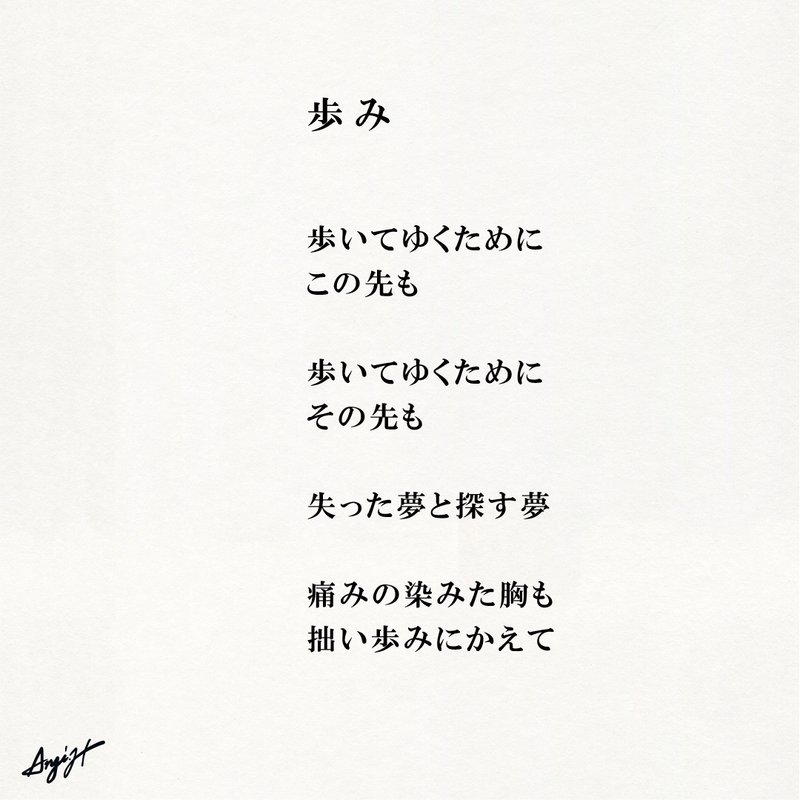 歩み
歩いてゆくために
この先も
歩いてゆくために
その先も
失った夢と探す夢
痛みの染みた胸も
拙い歩みにかえて